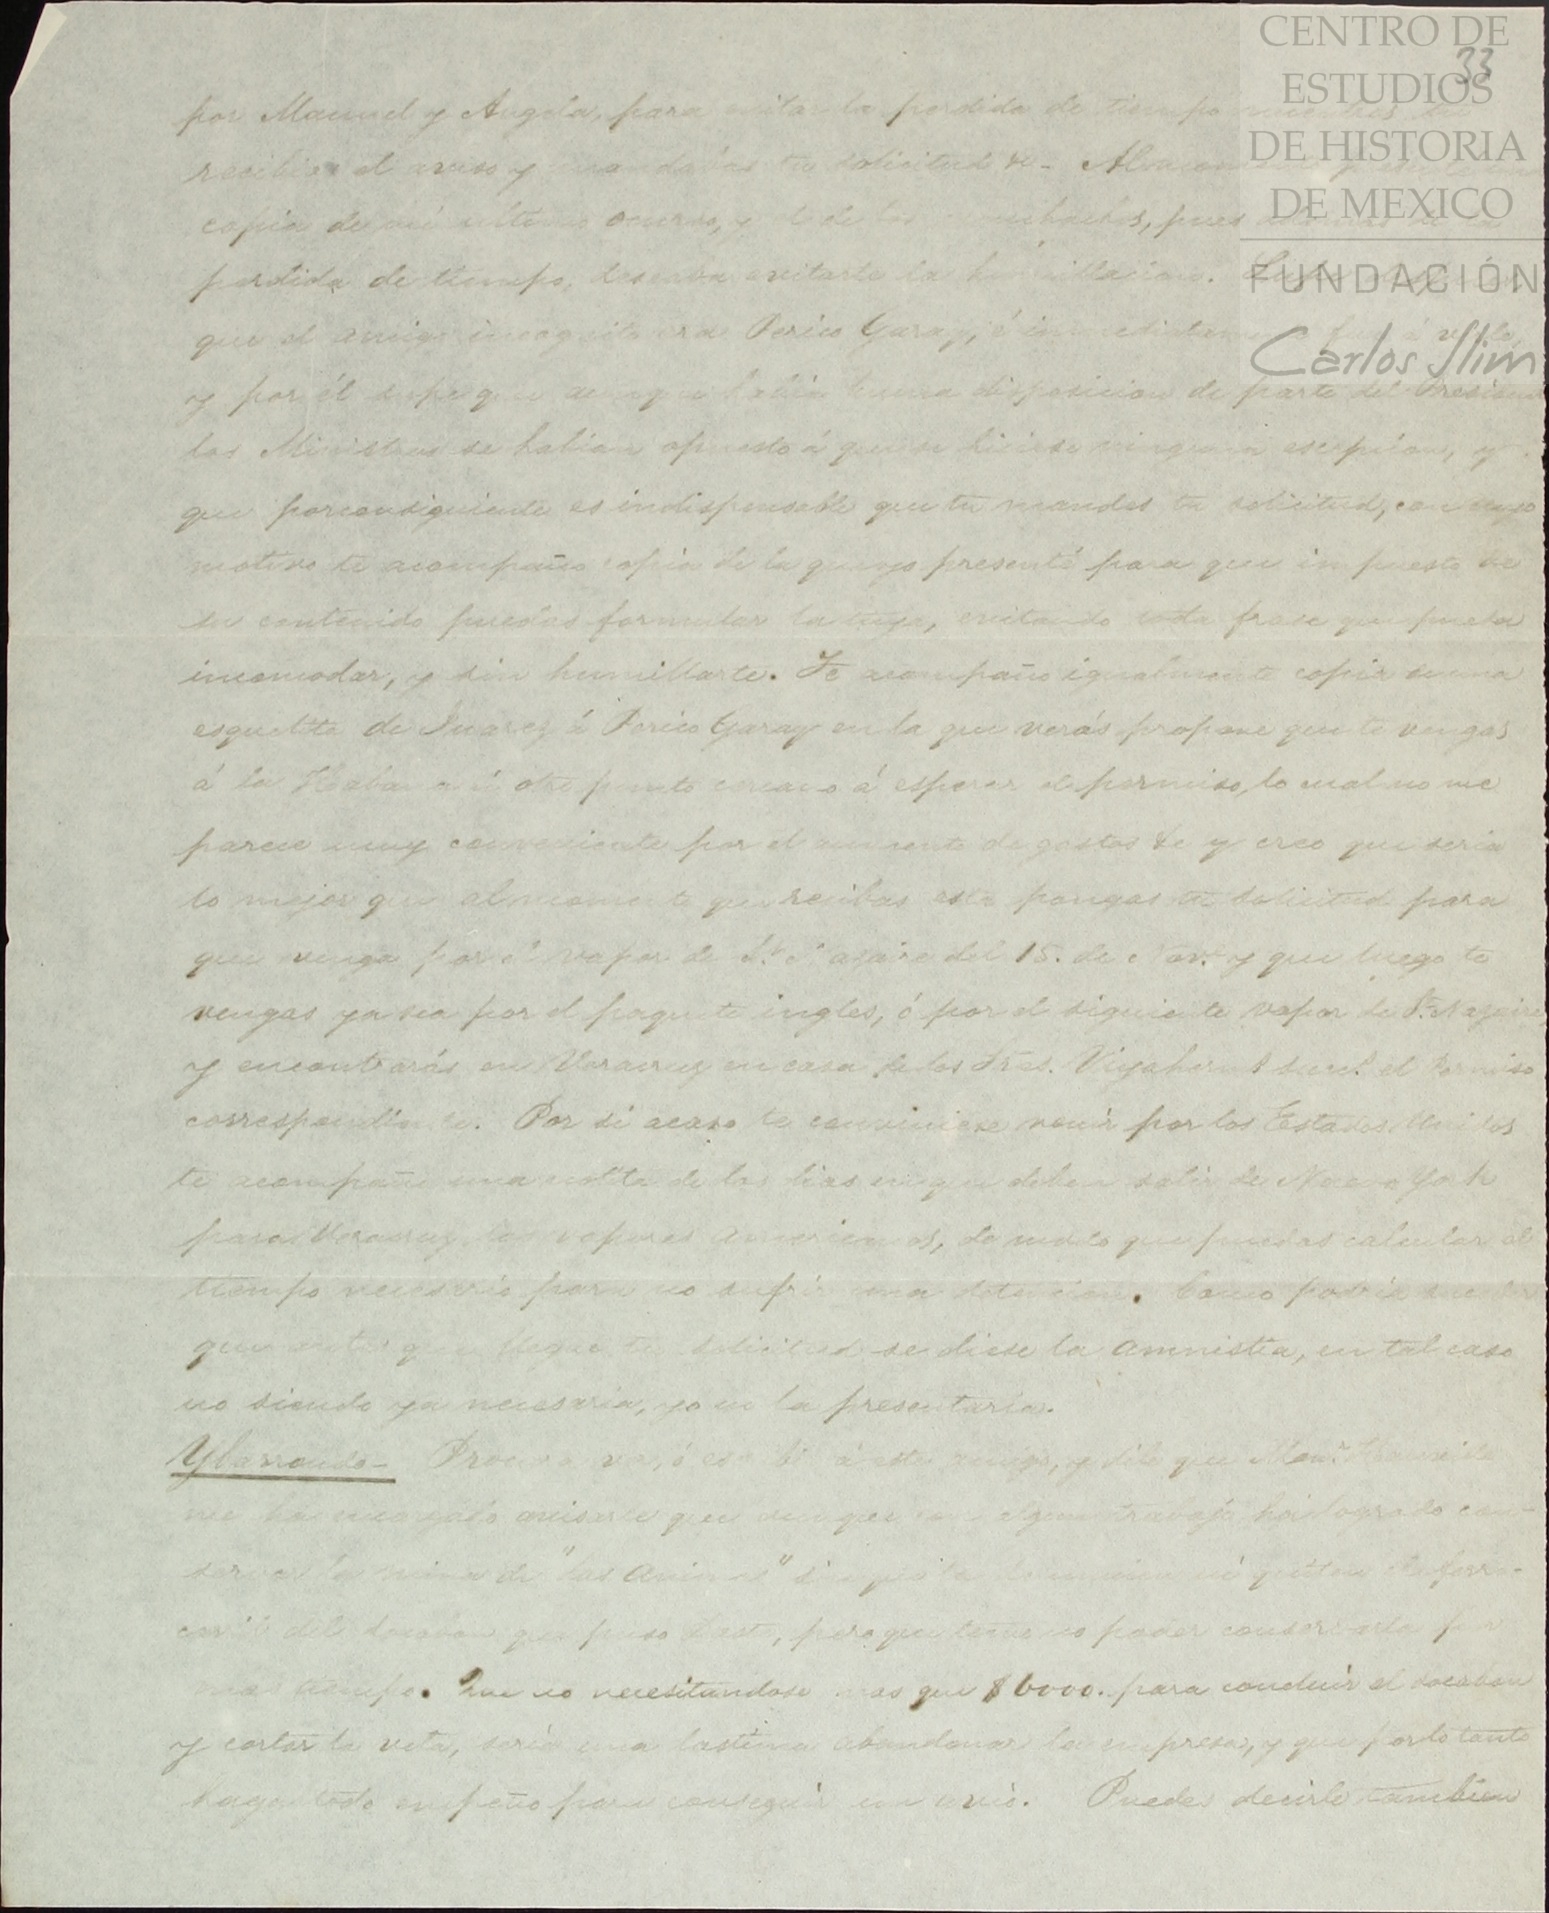 CENTRO DE
ESTUDIOS
DE HISTORIA
DE MEXICO
FUNDACIÓN
Carlos Slim
33
por Manuel y Angela, para evitar la perdida de tiempo
recibias el aviso y mandabas tu solicitud &-
copia de mi ultimo ocurso, y pues
perdida de tiempo, deseaba evitarte la humillacion.
que el amigo incognito era Perico Garay, é inmediatamente
y por él supe que aunque habia buena disposicion de parte del Presidente
los Ministros se habian opuesto á que se hiciese ninguna escepcion, y
que porconsiguiente es indispensable que tu mandes tu solicitud, con cuyo
motivo te acompaño copia de la que yo presenté para que impuesto de
su contenido puedas formular la tuya, evitando toda frase que pueda
incomodar, y sin humillarte. Te acompaño igualmente copia de una
esquelita de Juarez á Perico Garay en la que verás propone que te vengas
á la Habana ú otro punto cercano á esperar el permiso, lo cual no me
parece muy conveniente por el aumento de gastos &e y creo que seria
lo mejor que al momento que recibas esta pongas tu solicitud para
que venga por el vapor de St. Nazaire del 15. de Nove. y que luego te
vengas ya sea por el paquete ingles, ó por el siguiente vapor de St. Nazaire
y encontrarás en Veracruz en casa de los Sres. el permiso
correspondiente. Por si acaso te conviniese venir por los Estados Unidos
te acompaño una notita de los dias en que deben salir de Nueva York
para Veracruz los vapores americanos, de modo que puedas calcular el
tiempo necesario para no sufrir una detencion. Como podria suceder
que antes que llegue tu solicitud se diese la amnistia, en tal caso
no siendo ya necesaria, yo no la presentaria.
Ybarrondo- Procura ver, ó escribe á este amigo, y dile que
me ha encargado avisarle que aunque con algun trabajo ha logrado con-
servar la mina de "las Animas" sin que ni quiten el ferro-
carril del socabon que puso pero que teme no poder conservarla por
mas tiempo. Que no necesitandose mas que $6000. para concluir el socabon
y cortar la veta, seria una lastima abandonar la empresa, y que por lo tanto
haga todo empeño para conseguir un avio. Puedes decirle tambien